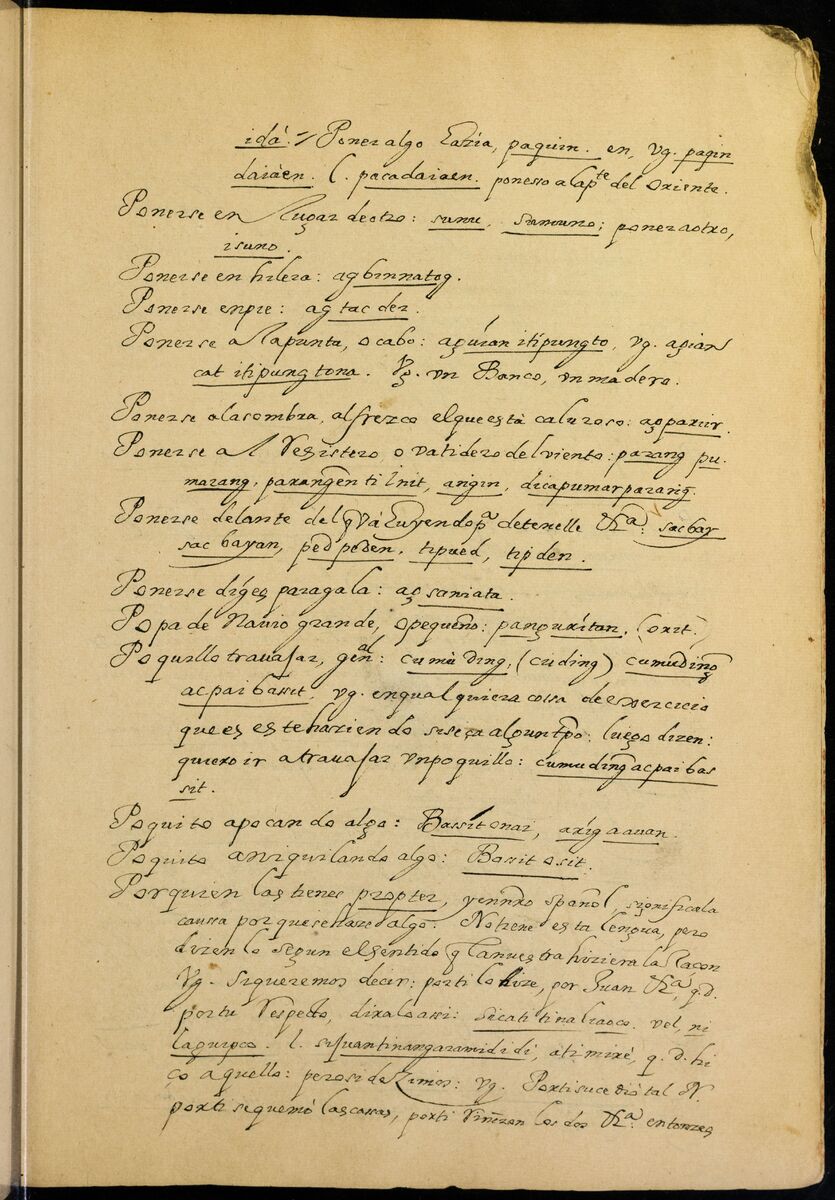 idá. Poner algo hazia, paquin. en, vg. paqin
daiáen. l. pacadaiaen. ponesso a la pte del oriente.
Ponerse en lugar de otro: sunu, sumuno; poner a otro,
isuno.
Ponerse en hilera: agbinnatog.
Ponerse en pie: ag tac der.
Ponerse a la punta, o cabo: aguían itipungto, vg. agian
cat itipungtona. Vg. vn Banco, vn madero.
Ponerse a la sombra, al frezco el que està caluroso: agpariir.
Ponerse al resistero o vatidero del viento: parang pu-
marang, parangen ti Init, angin, dicapumarparang.
Ponerse delante del q va huyendo pa detenelle &a: sacbay
sac bayan, ped peden, tipued, tip den.
Ponerse diges para gala: ag saniata.
Popa de Nauio grande, o pequeño: pangurítan, (orit.)
Poquillo trauajar, genal: cumùding, (cuding) cumuding
ac pai bassit, vg. en qualquiera cossa de exercicio
que es este haziendo si sesga algun tpo. luego dizen:
quiero ir a trauajar vn poquillo: cumuding ac pai bas
sit.
Poquito apocando algo: Bassit onai, ariga auan.
Poquito aniquilando algo: Bassit osit.
Por quien las tienes propter, y en nro español, significa la
caussa por que se haze algo. No tiene esta lengua, pero
dizenlo segun el sentido q la nuestra hiziera la raçon
Vg. si queremos decir: por ti lo hize, por Juan &a, q.d.
por tu respecto, diralo assi: sicati tinaliaoco. vel, ni
laguipco. l. si Juan tinangaramidi di, a ti mirè, q. d. hi
ço aquello: pero si dezimos: vg. Por ti sucediò tal N.
por ti se quemò las cassas, por ti riñeron los dos &a. entonzes